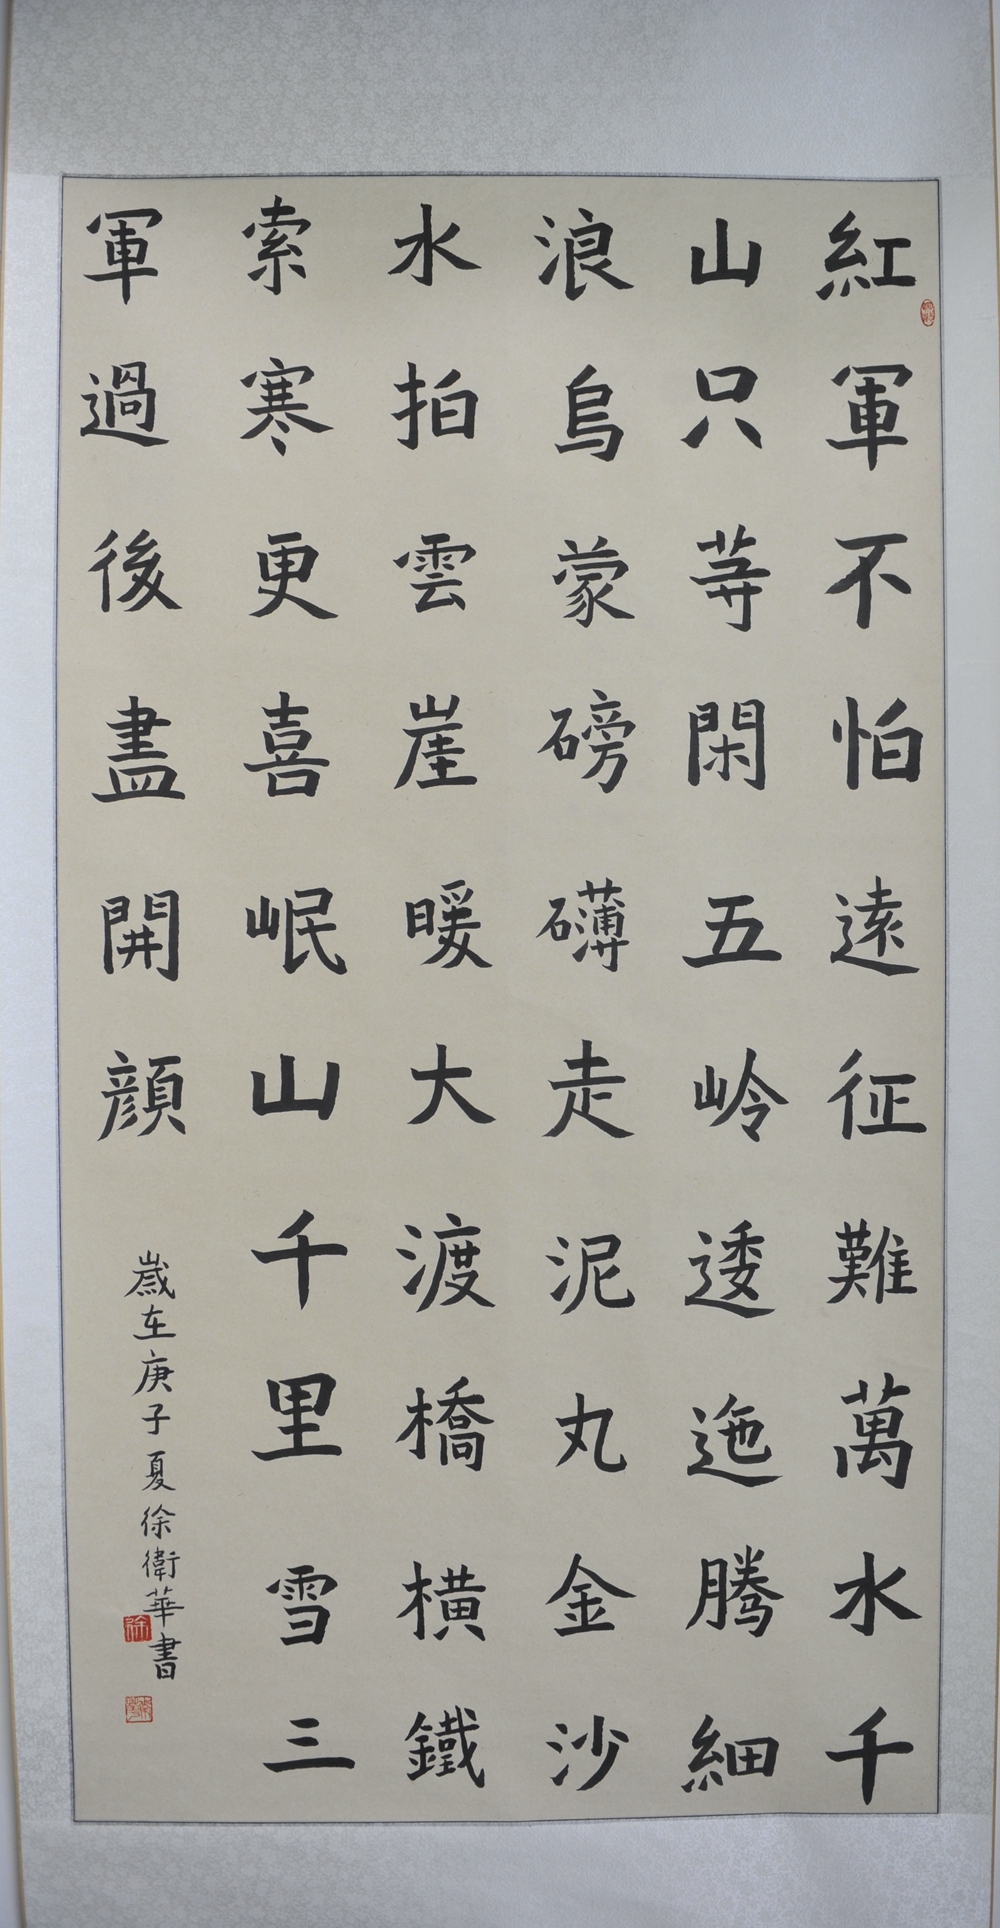 紅軍不怕遠征難萬水千
山只等閑五岭逶迤腾細
浪烏蒙磅礴走泥丸金沙
水拍雲崖暖大渡橋橫鐵
索寒更喜岷山千里雪三
軍過後盡開顏
歲在庚子夏徐衛華書